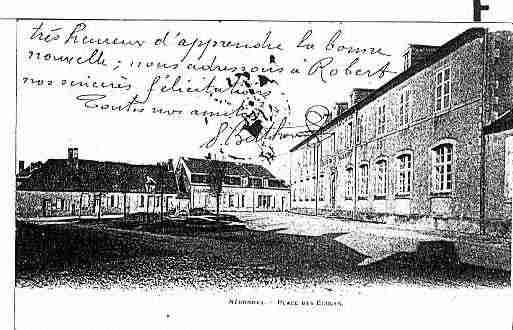 très heureux d'apprendre la bonne
nouvelle ; nous adressons à Robert
nos sincères félicitations
Toutes nos amitiés
NÉRONDES. - PLACE DES ÉCOLES.